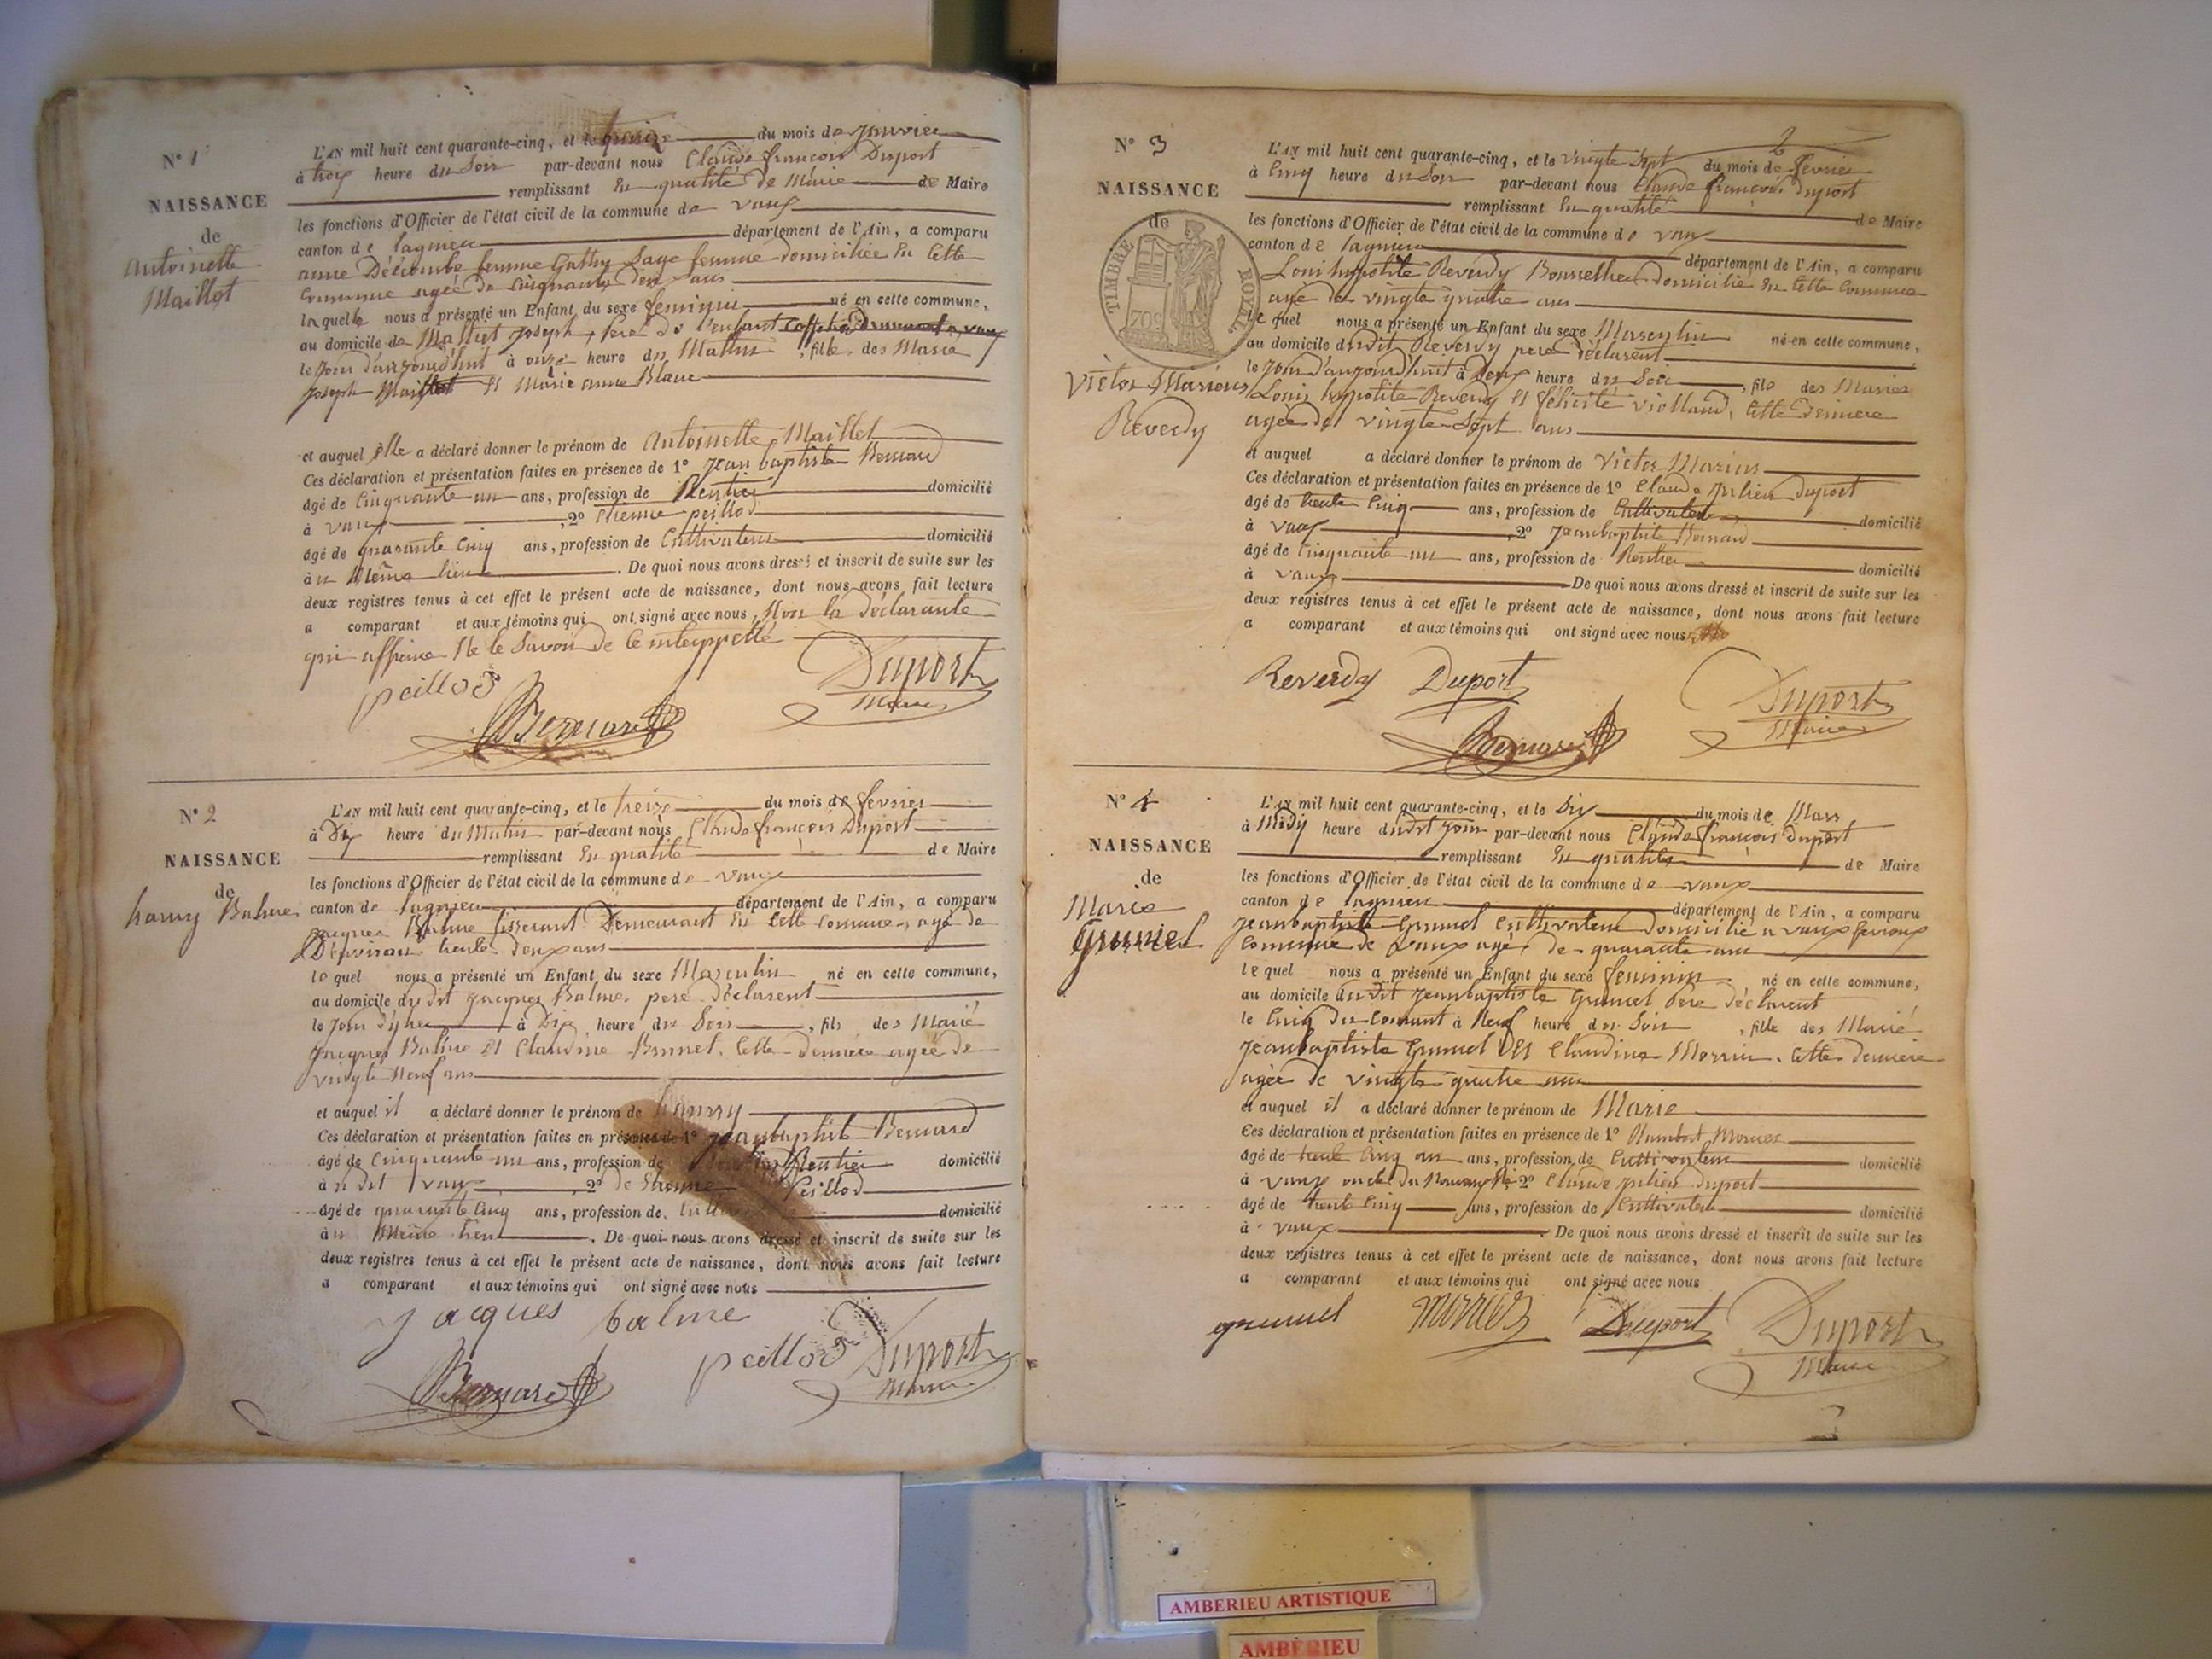 N° 1
NAISSANCE
de
Antoinette
Maillot
L'AN mil huit cent quarante-cinq, et le du mois de Janvier
à trois heure du Soir par-devant nous Claude françois Duport
remplissant En qualité de Maire de Maire
les fonctions d'Officier de l'état civil de la commune de vaux
canton de lagnieu département de l'Ain, a comparu
anne femme Sage femme domiciliée En Cette
Commune agée de Cinquante deux ans
laquelle nous a présenté un Enfant du sexe feminin né en cette commune,
au domicile de Joseph, Pere de l'enfant
le Jour d'aujourd'hui à onze heure du Matin, fille des Marié
Joseph Maillot Et Marie anne Blanc
et auquel elle a déclaré donner le prénom de Antoinette Maillet
Ces déclaration et présentation faites en présence de 1° Jean baptiste Bernard
âgé de Cinquante un ans, profession de Rentier domicilié
à vaux, 2° Etienne peillod
âgé de quarante Cinq ans, profession de Cultivateur domicilié
à u Même lieu. De quoi nous avons dressé et inscrit de suite sur les
deux registres tenus à cet effet le présent acte de naissance, dont nous avons fait lecture
a comparant et aux témoins qui ont signé avec nous, Non la déclarante
qui affirme Ne le Savoir de Ce
peillod
Bernard
Duport
Maire
N° 2
NAISSANCE
de
hamy Balme
L'AN mil huit cent quarante-cinq, et le treize du mois de fevrier
à Dix heure du Matin par-devant nous Claude françois Duport
remplissant En qualité de Maire
les fonctions d'Officier de l'état civil de la commune de vaux
canton de lagnieu département de l'Ain, a comparu
Jacques Balme tisserant Demeurant En Cette Commune, agé de
D'environ trente deux ans
le quel nous a présenté un Enfant du sexe Masculin né en cette commune,
au domicile du dit Jacques Balme pere déclarent
le Jour d'hier à Dix heure du Soir, fils des Marié
Jacques Balme Et Claudine Brunel. Cette derniere agée de
vingte Neuf ans
et auquel il a déclaré donner le prénom de
Ces déclaration et présentation faites en présence de 1° Jeanbaptiste Bernard
âgé de Cinquante un ans, profession de Rentier domicilié
à u dit vaux 2° de Etienne Peillod
âgé de quarante Cinq ans, profession de domicilié
à u Même lieu. De quoi nous avons dressé et inscrit de suite sur les
deux registres tenus à cet effet le présent acte de naissance, dont nous avons fait lecture
a comparant et aux témoins qui ont signé avec nous
Jacques balme
Bernard
peillod
Duport
Maire
2
N° 3
NAISSANCE
de
TIMBRE ROYAL
70c
Victor Marious
Reverdy
L'AN mil huit cent quarante-cinq, et le vingte Sept du mois de fevrier
à Cinq heure du Soir par-devant nous Claude françois Duport
remplissant En qualité de Maire
les fonctions d'Officier de l'état civil de la commune de vaux
canton de lagnieu département de l'Ain, a comparu
Loui hypolite Reverdy Bourrelier domicilié En Cette Commune
agé de vingte quatre ans
le quel nous a présenté un Enfant du sexe Masculin né en cette commune,
au domicile dudit Reverdy pere déclarent
le Jour d'aujourd'huit à Deux heure du Soir, fils des Marié
Louis hypolite Reverdy Et félicité violland, Cette Derniere
agée de vingte Sept ans
et auquel a déclaré donner le prénom de Victor Marius
Ces déclaration et présentation faites en présence de 1° Claude Julien duport
âgé de trente Cinq ans, profession de Cultivateur domicilié
à vaux, 2° Jeanbaptiste Bernard
âgé de Cinquante un ans, profession de Rentier domicilié
à vaux De quoi nous avons dressé et inscrit de suite sur les
deux registres tenus à cet effet le présent acte de naissance, dont nous avons fait lecture
a comparant et aux témoins qui ont signé avec nous
Reverdy Duport
Bernard
Duport
Maire
N° 4
NAISSANCE
de
Marie
Grumel
L'AN mil huit cent quarante-cinq, et le Dix du mois de Mars
à Midy heure dudit Jour par-devant nous Claude françois Duport
remplissant En qualité de Maire
les fonctions d'Officier de l'état civil de la commune de vaux
canton de lagnieu département de l'Ain, a comparu
Jeanbaptiste Grumel Cultivateur domicilié a vaux fevroux
Commune de vaux agé de quarante ans
le quel nous a présenté un Enfant du sexe feminin né en cette commune,
au domicile dudit Jeanbaptiste Grumel Pere déclarent
le Cinq du Courant à Neuf heure du Soir, fille des Marié
Jeanbaptiste Grumel Et Claudine Cette derniere
agée de vingte quatre ans
et auquel il a déclaré donner le prénom de Marie
Ces déclaration et présentation faites en présence de 1° Humbert
âgé de trente Cinq ans ans, profession de Cultivateur domicilié
à vaux oncle du 2° Claude Julien duport
âgé de trente Cinq ans, profession de Cultivateur domicilié
à vaux De quoi nous avons dressé et inscrit de suite sur les
deux registres tenus à cet effet le présent acte de naissance, dont nous avons fait lecture
a comparant et aux témoins qui ont signé avec nous
grumel Duport Duport
Maire
AMBERIEU ARTISTIQUE
AMBÉRIEU